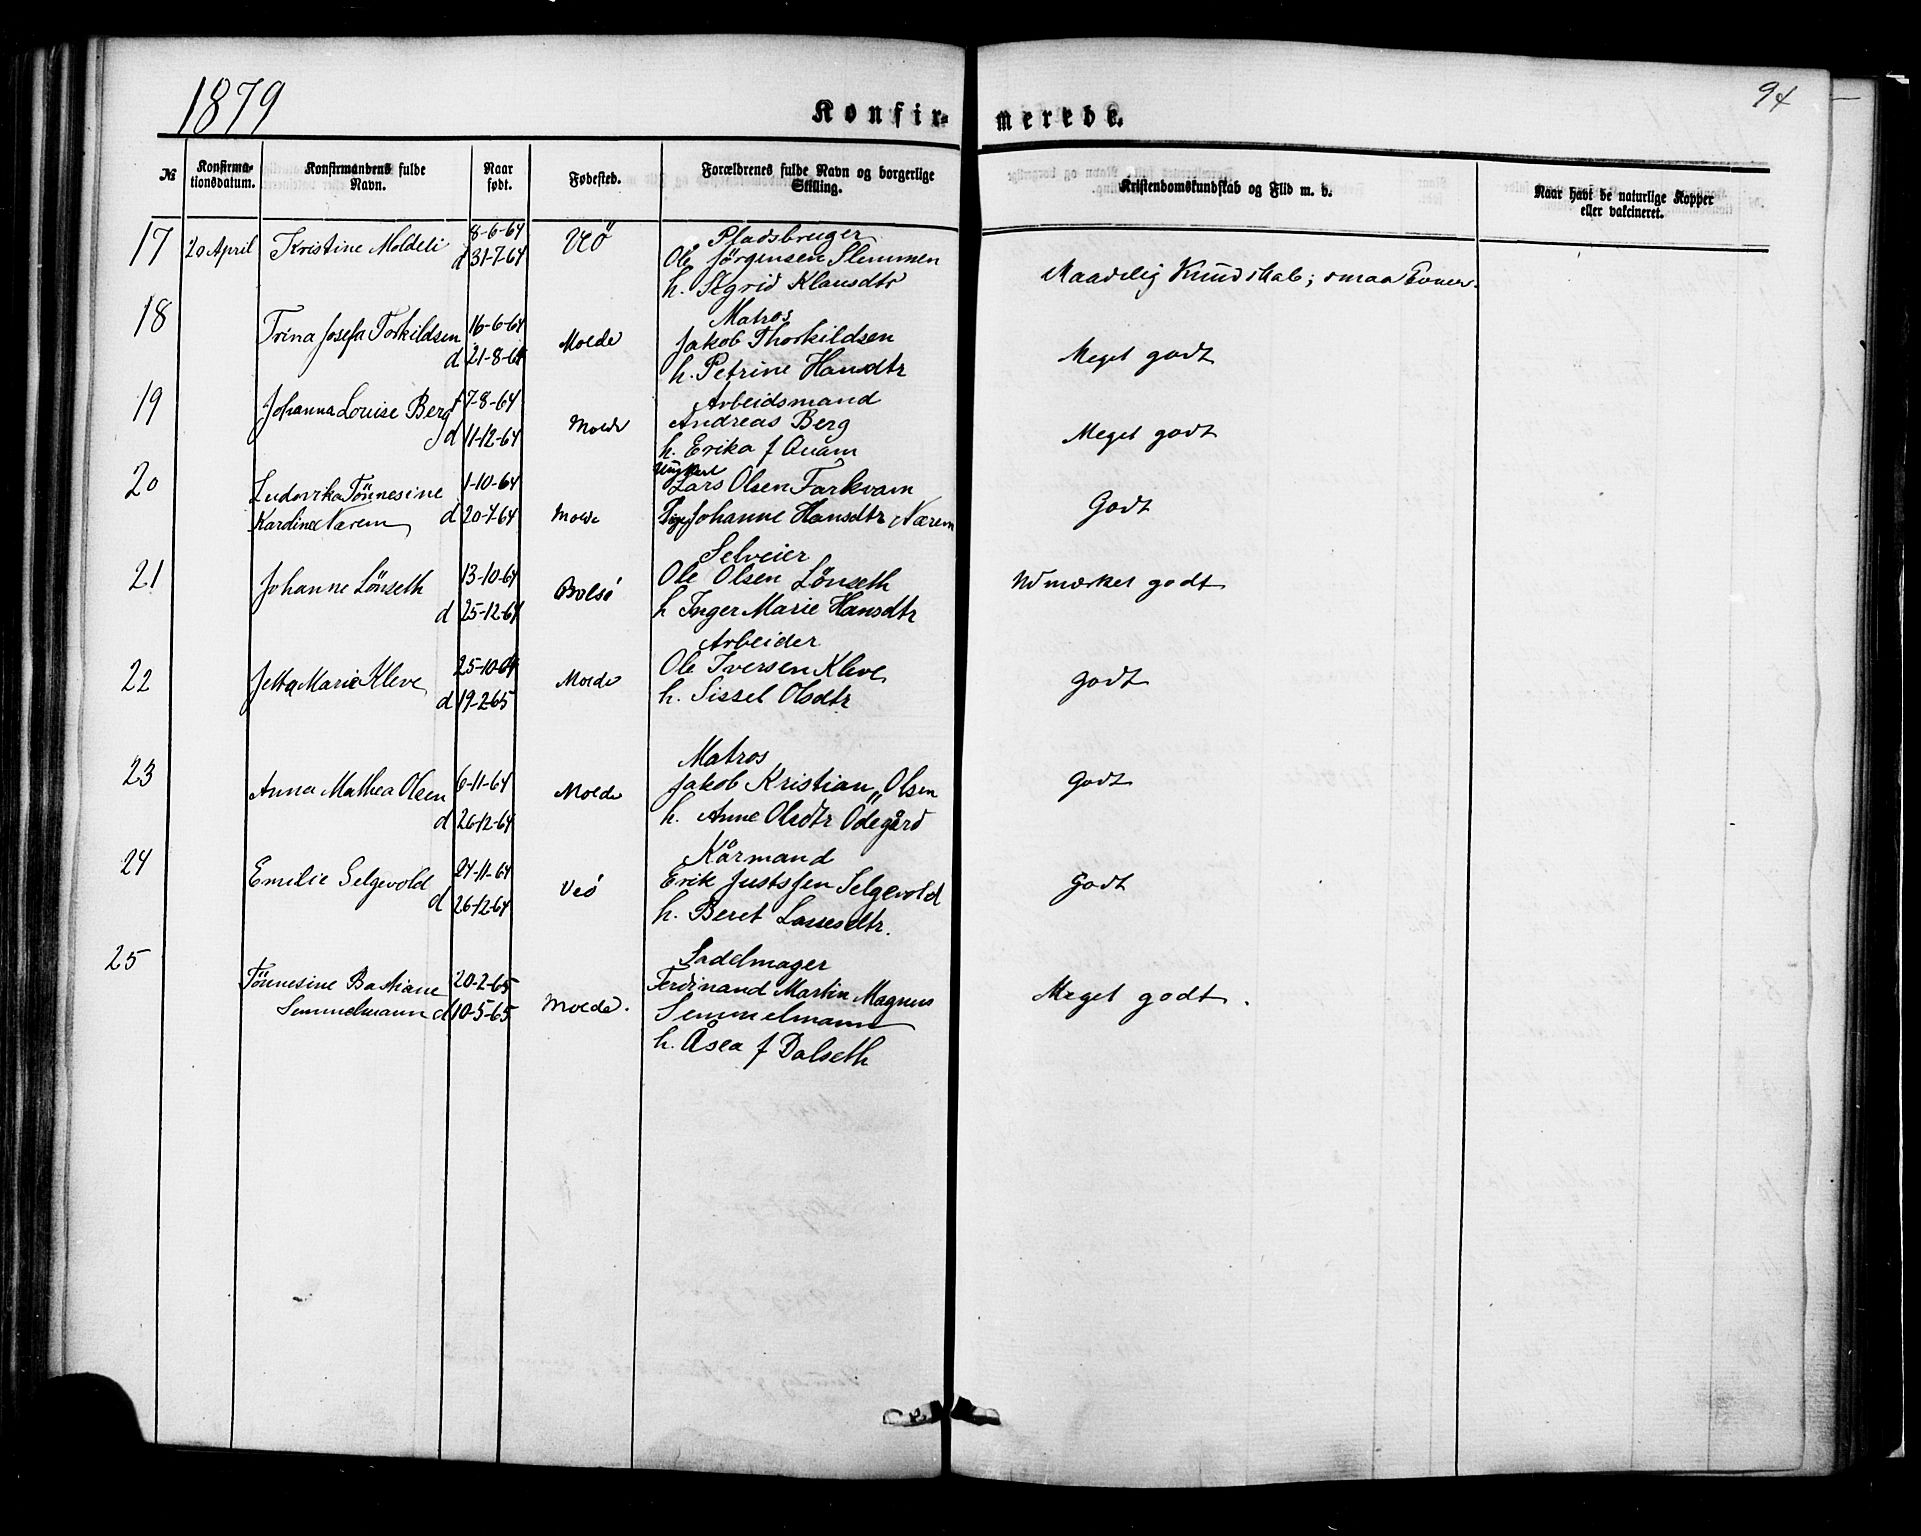 1879
94
Konfir- merede.
№
Konfirma-
tionsdatum.
Konfirmandens fulde
Navn.
Naar
født.
Fødested.
Forældrenes fulde Navn og borgerlige
Stilling.
Kristendomskundskab og Flid m. v.
Naar havt de naturlige Kopper
eller vakcineret.
17 20 April Kristine Moldeli 8-6-64 Veö Pladsbruger
d 31-7-64 Ole Jørgensen Slemmen
h. Sigrid Klausdtr Maadelig Kundskab; smaa Evner.
18 Trina Josefa Torkildsen 16-6-64 Molde Matros
d 21-8-64 Jakob Thorkildsen
h. Petrine Hansdtr Meget godt
19 Johanna Louise Berg f 7-8-64 Molde Arbeidsmand
d 11-12-64 Andreas Berg
h. Erika f Qvam Meget godt
20 Ludovika Tönnesine 1-10-64 Ungkarl
Lars Olsen Farkvam
Kardine Nærem d 20-7-64 Molde Pige Johanne Hansdtr Nærem Godt
21 Johanne Lönseth 13-10-64 Bolsö Selveier
Ole Olsen Lönseth
d 25-12-64 h Inger Marie Hansdtr Udmærket godt
22 Jetta Marie Kleve 25-10-64 Molde Arbeider
Ole Iversen Kleve
d 19-2-65 h. Sissel Olsdtr godt
23 Anna Mathea Olsen 6-11-64 Molde Matros
Jakob Kristian Olsen
d 26-12-64 h. Anne Olsdtr Ödegård Godt
24 Emilie Selgevold 24-11-64 Veö Kårmand
Erik Justsen Selgevold
d 26-12-64 h. Beret Lassesdtr. Godt
25 Tönnesine Bastiane 20-2-65 Molde. Sadelmager
Ferdinand Martin Magnus
Semmelmann d 10-5-65 Semmelmann
h. Åsea f Dalseth Meget godt.